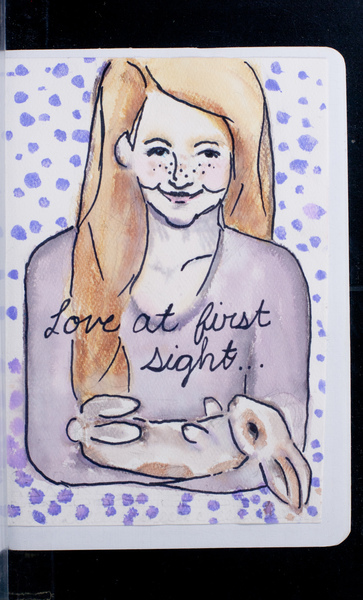 Love at first
sight...